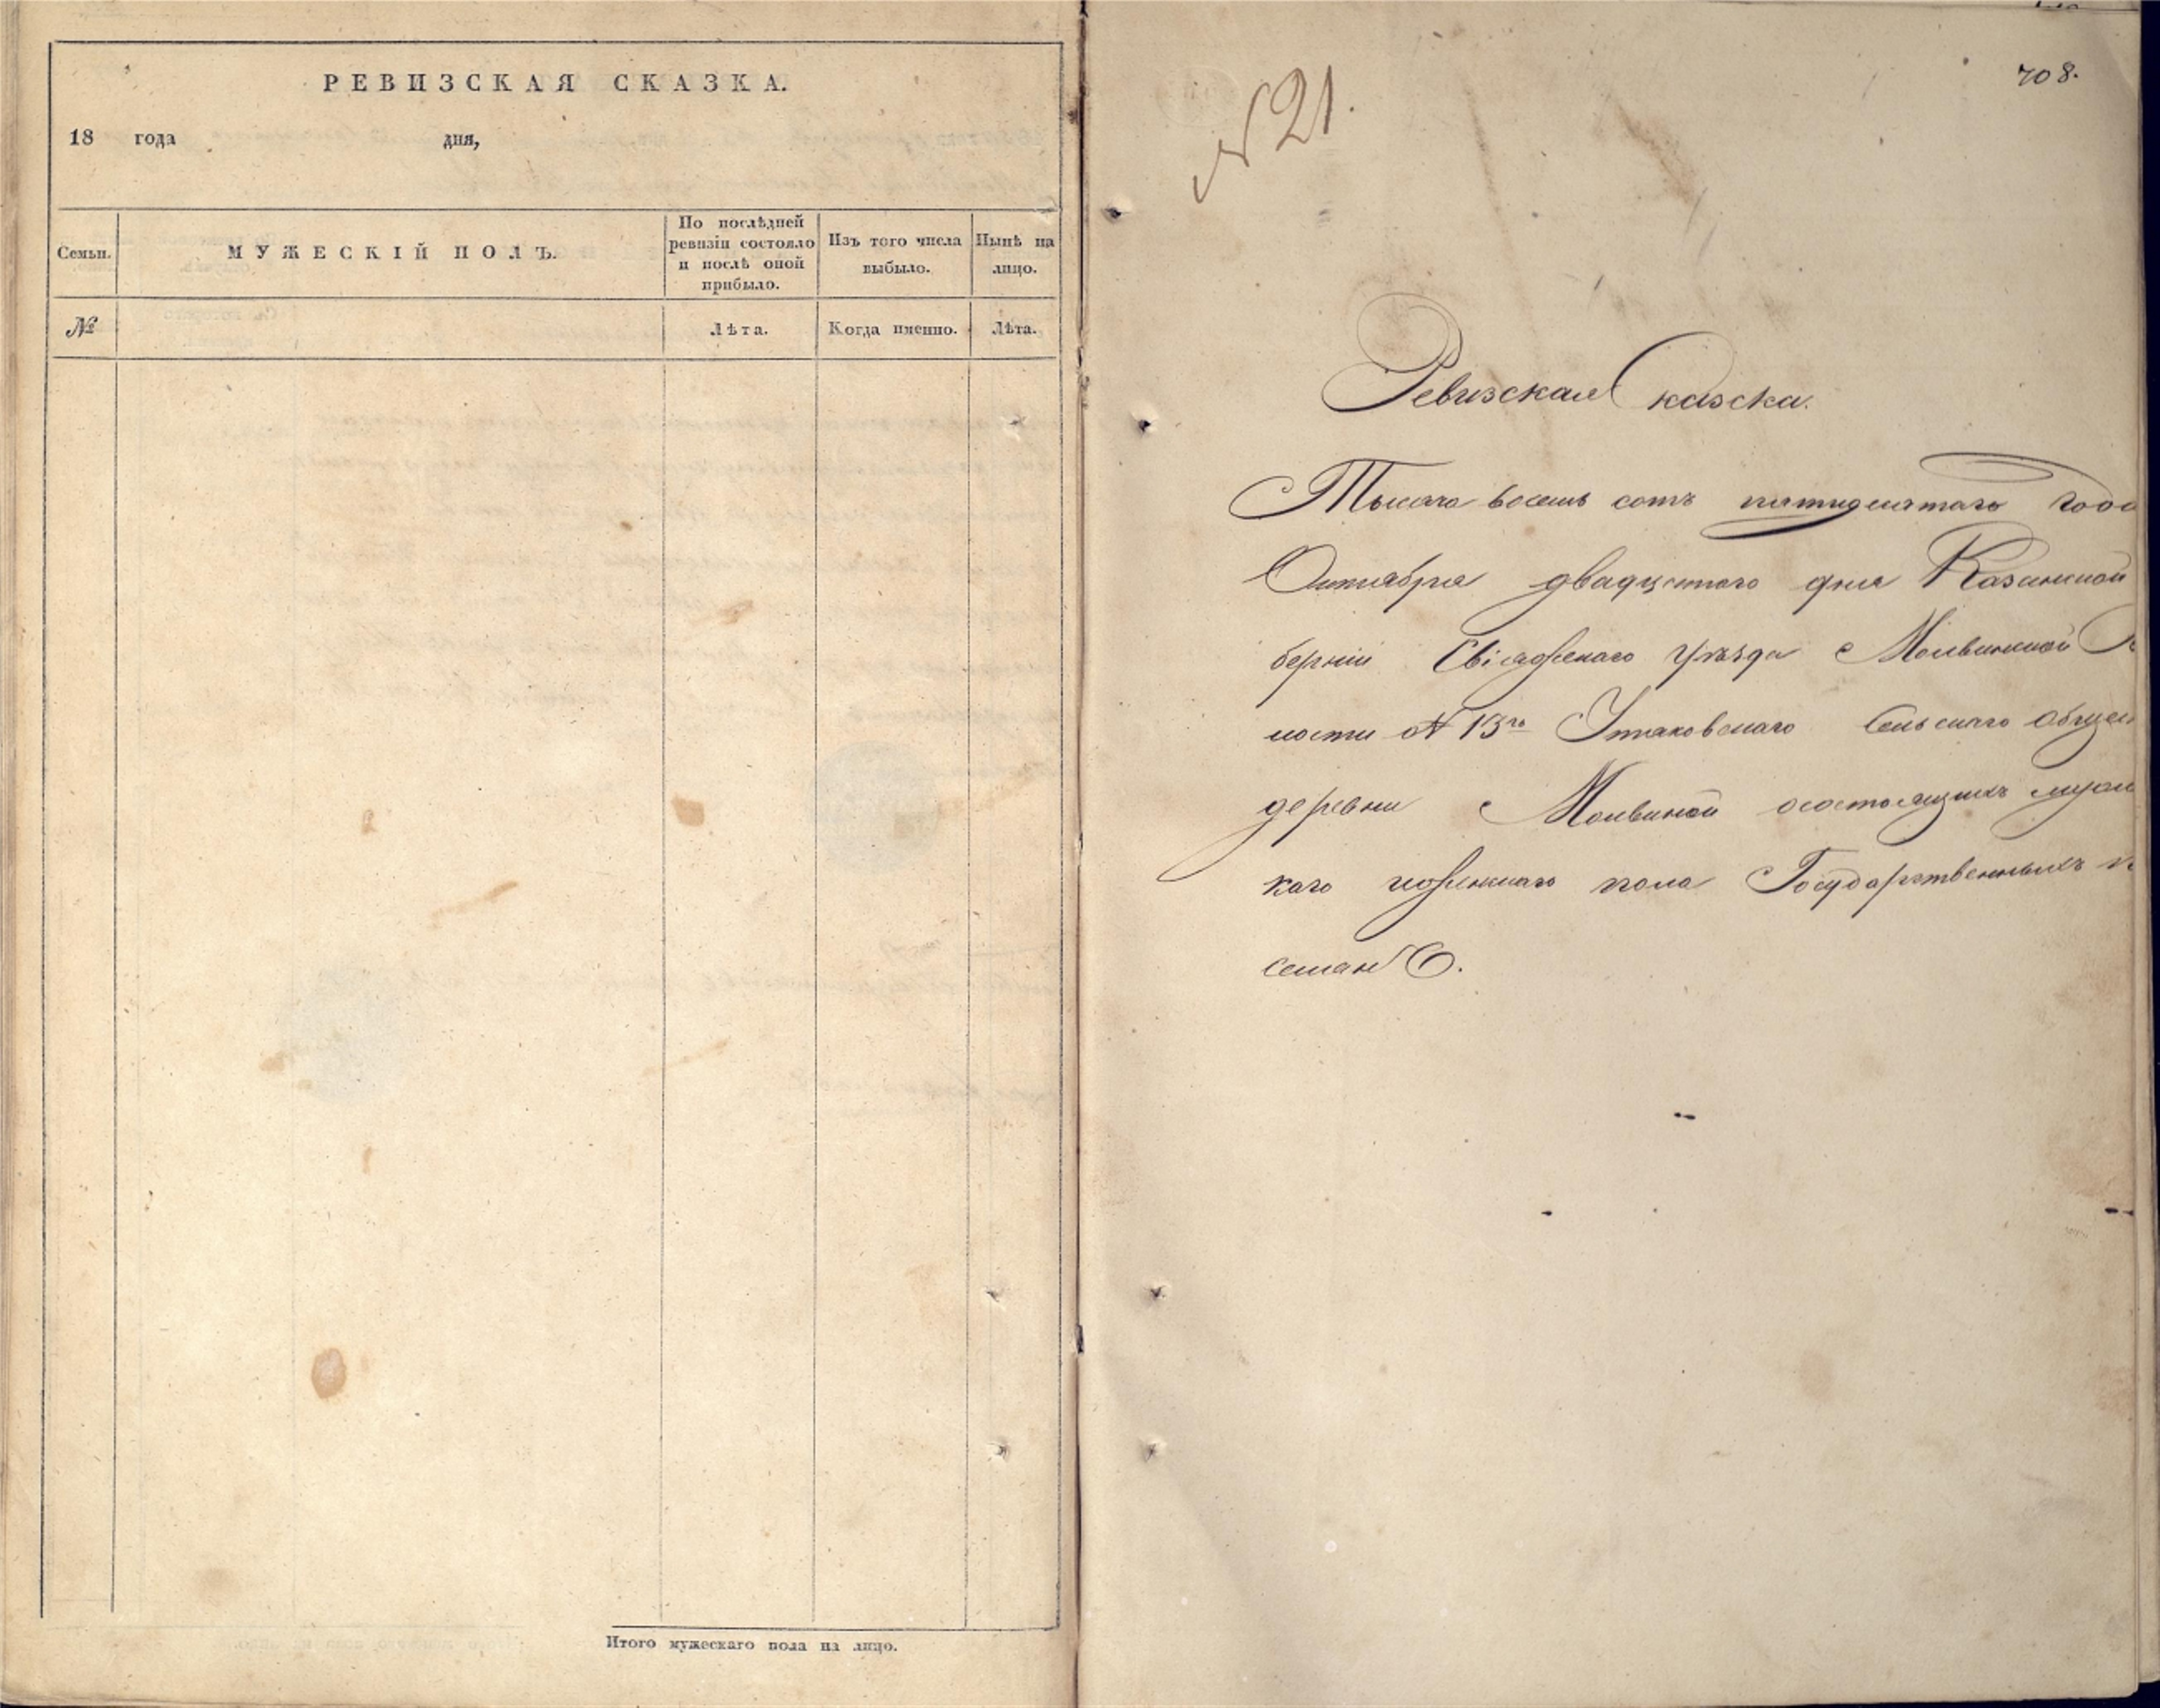 РЕВИЗСКАЯ СКАЗКА.
18 года дня,
Семьи.
МУЖЕСКІЙ ПОЛЪ.
По послѣдней
ревизіи состояло
и послѣ оной
прибыло.
Изъ того числа
выбыло.
Нынѣ на
лицо.
№
Лѣта.
Когда именно.
Лѣта.
Итого мужескаго пола на лицо.
N 21.
708.
Ревизская Сказска.
Тысяча восемь сотъ пятидесятаго года
Октября двадцатаго дня Казанской
берніи Свіяжскаго Уѣзда Молвинской
ности N 13го Утяковскаго Сельскаго общес
деревни Молвиной осостоящихъ мужес
каго иженскаго пола Государственныхъ
селянъ.